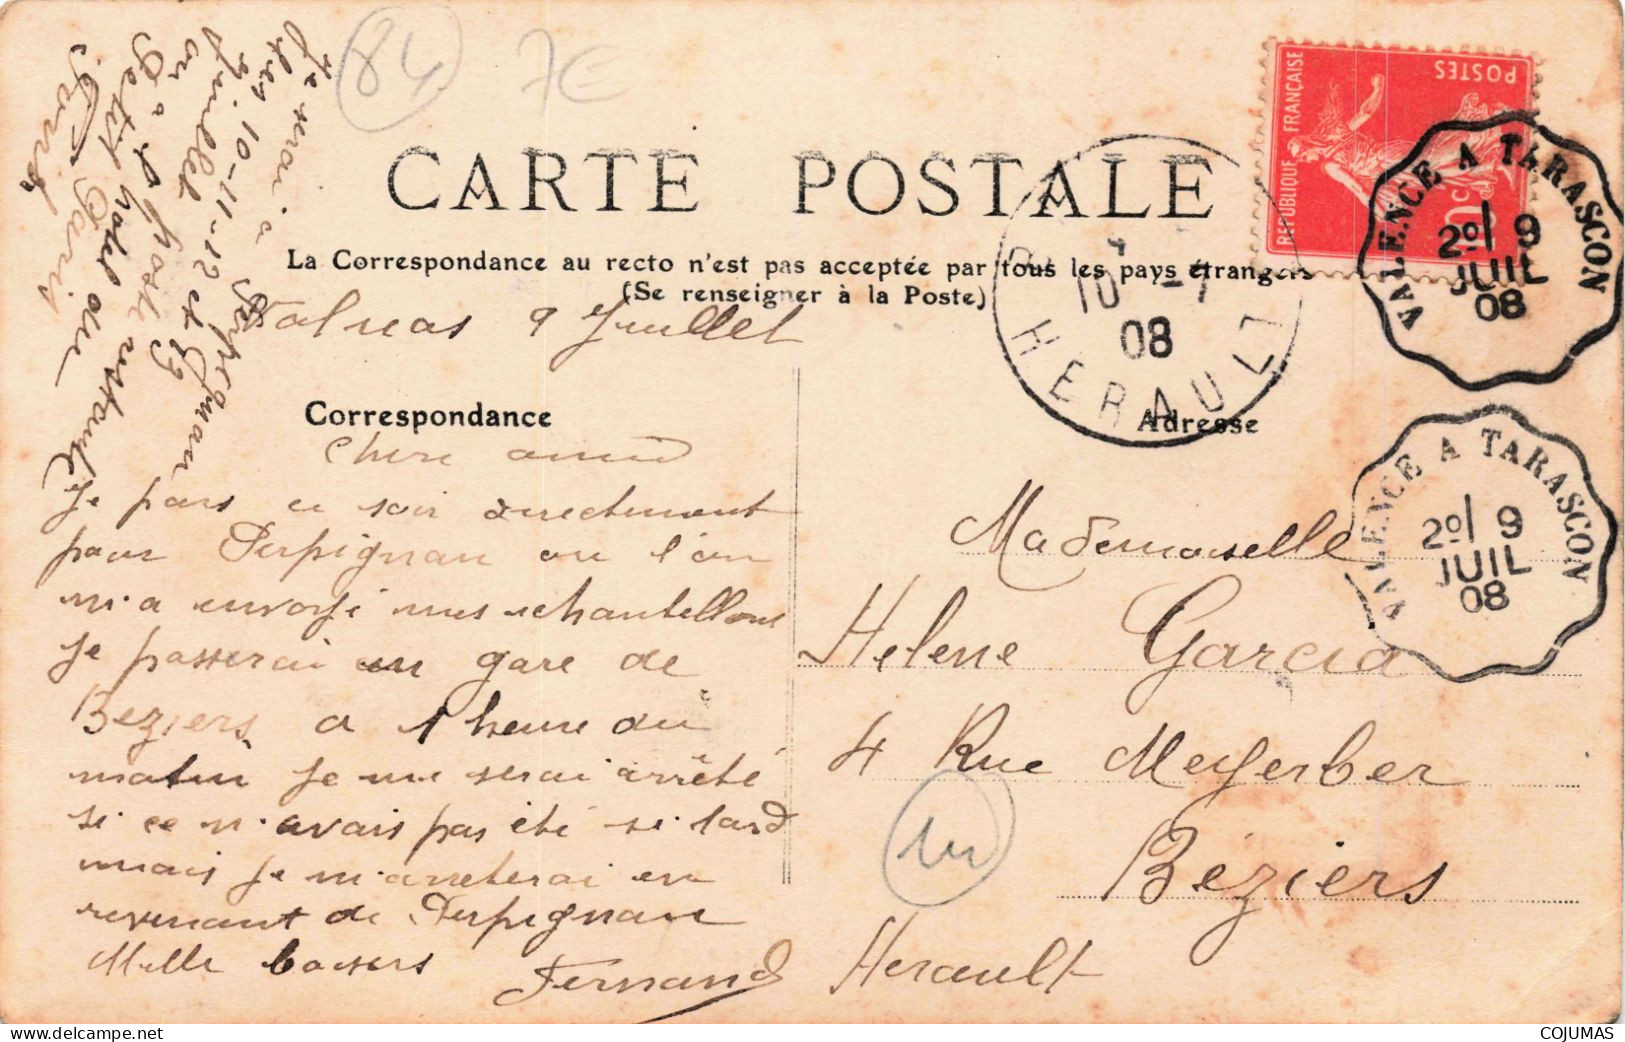 84
7€
CARTE POSTALE
La Correspondance au recto n'est pas acceptée par tous les pays étrangers
(Se renseigner à la Poste)
RÉPUBLIQUE FRANÇAISE
POSTES
10c
VALENCE A TARASCON
2º 9
JUIL
08
10 -7
08
HERAULT
VALENCE A TARASCON
2º 9
JUIL
08
Je serai a Perpignan
les 10-11-12 et 13
Juillet
ou
a la poste restante
Petit hotel du
Paris
Valreas 9 Juillet
Correspondance
Adresse
Chere amie
Je pars ce soir directement
pour Perpignan ou l'on
m'a envoyé mes echantillons
Je passerai en gare de
Beziers a 1 heure du
matin je me serai arrêté
si ce n'avais pas été si tard
mais je m'arreterai en
revenant de Perpignan
Mille baisers
Fernand
Mademoiselle
Helene Garcia
4 Rue Meyerber
Béziers
Herault
COJUMAS